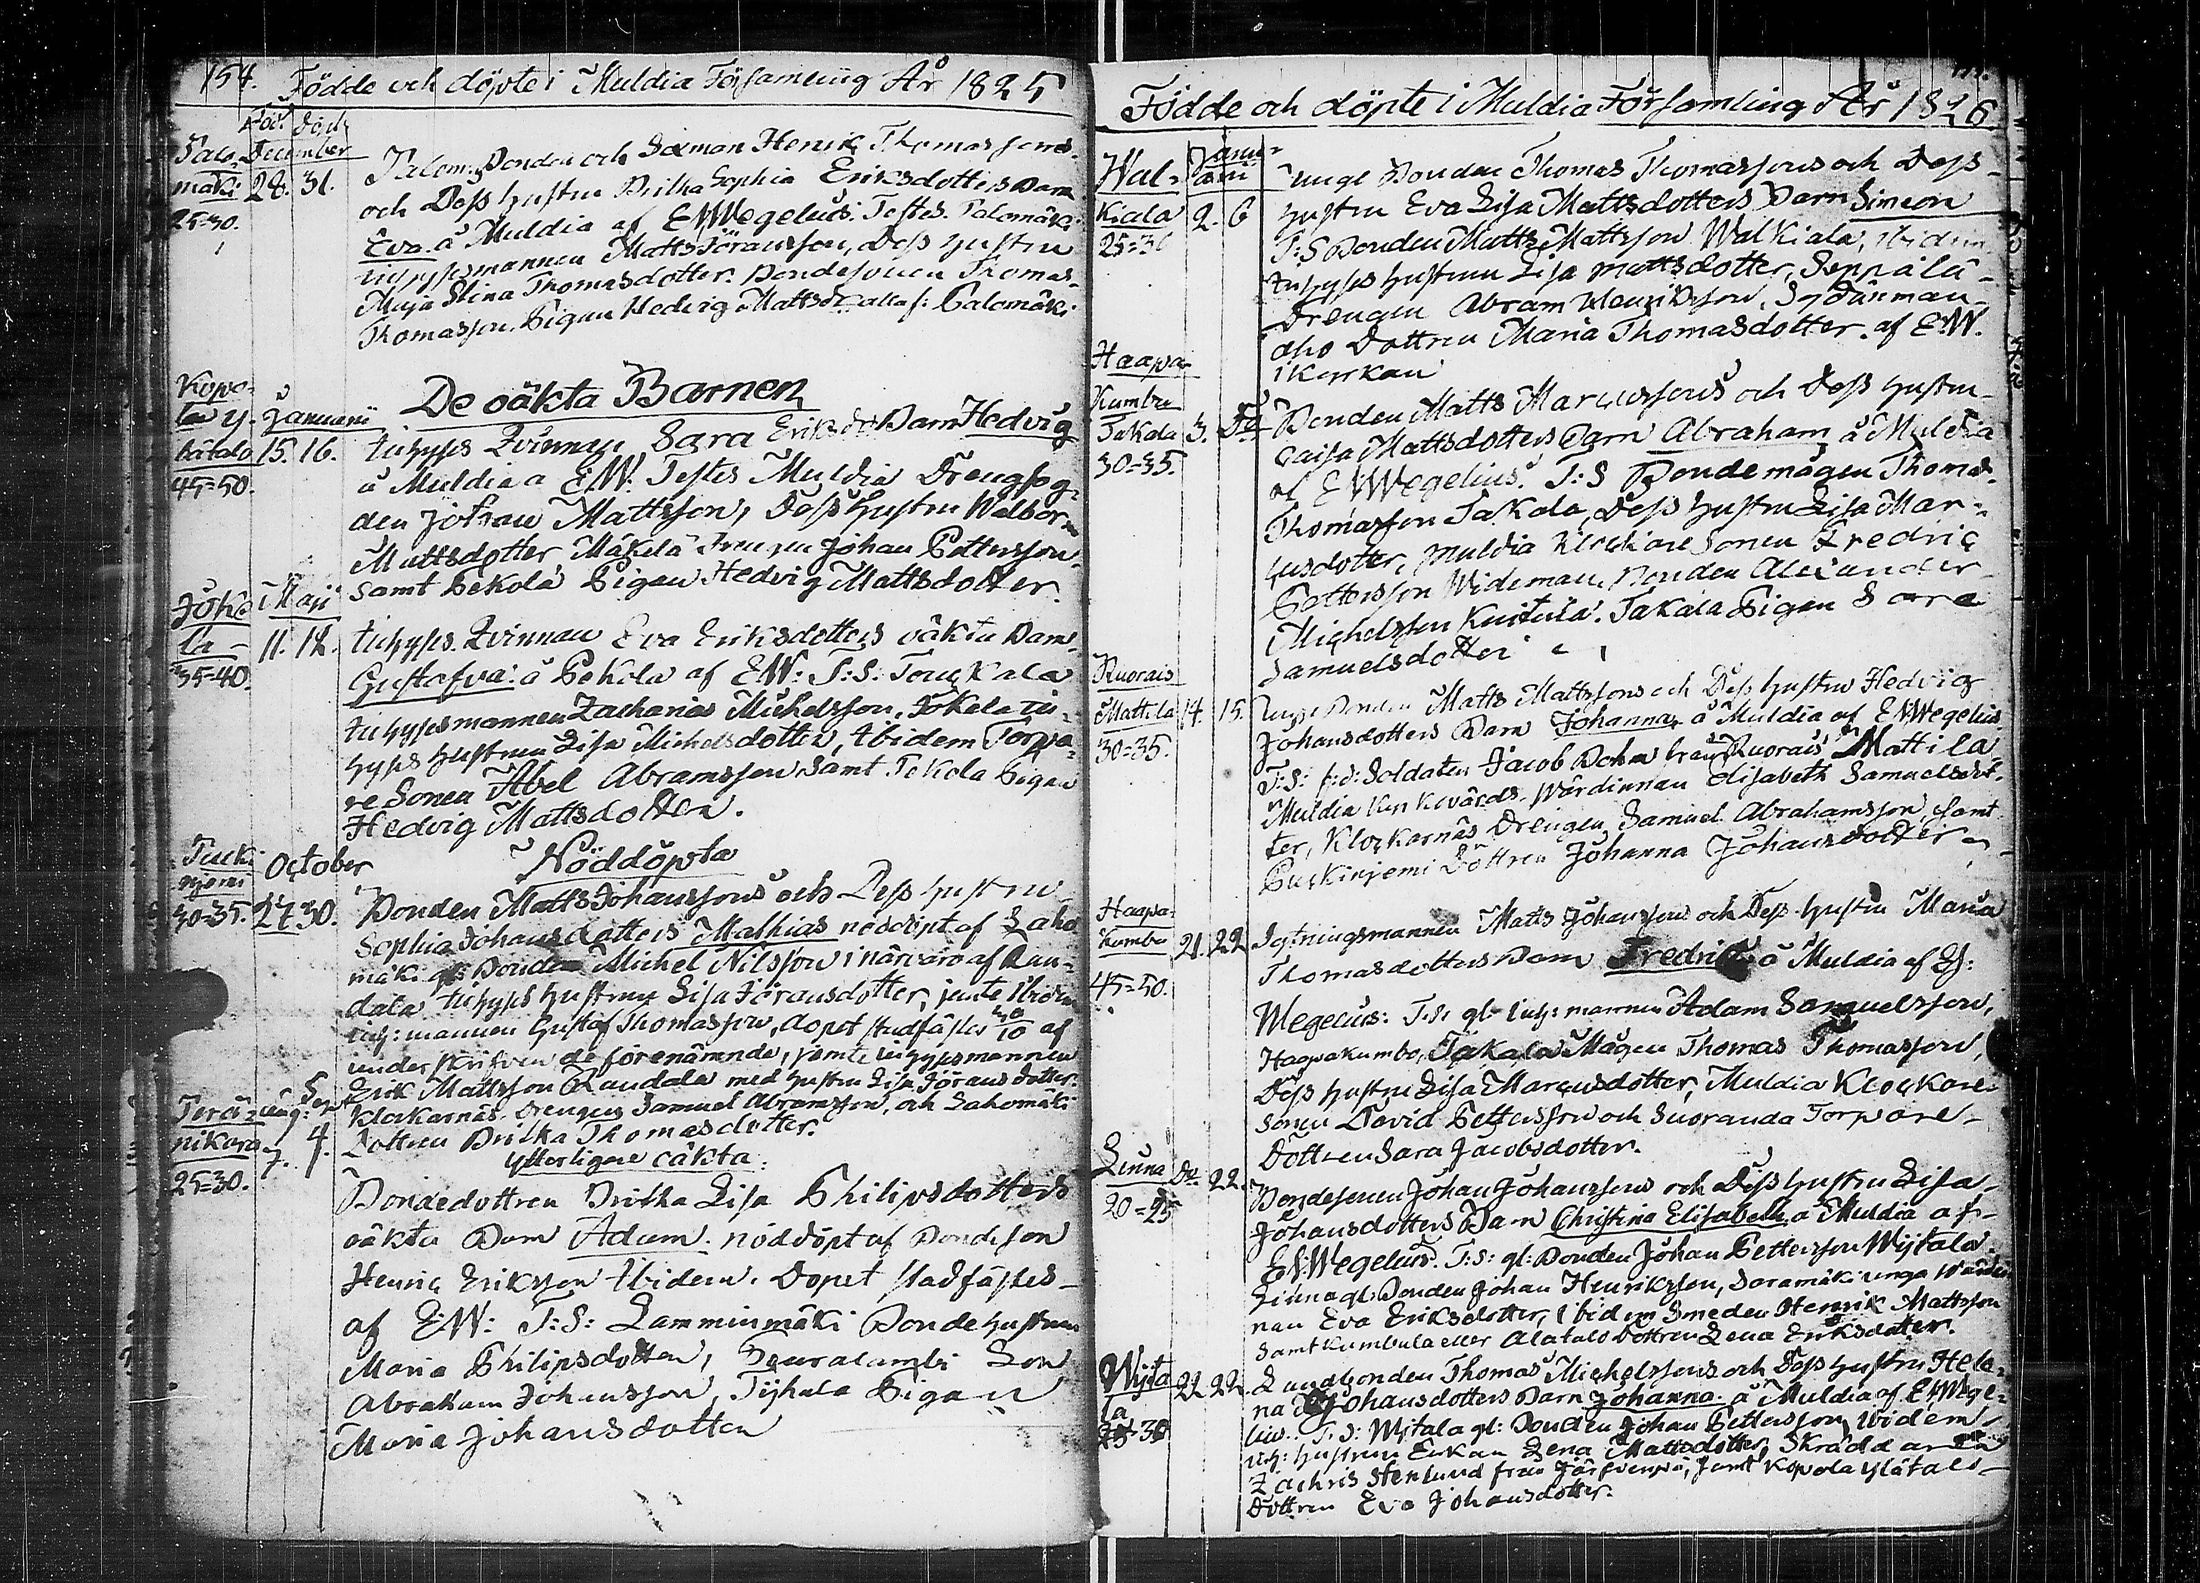 154. Födde och döpte i Muldia Församling År 1825
Föd. döpt
December
Palo-
mäki 28. 31.
25=30.
Palom: Bonden och Sexman Henric Thomassons
och Dess hustru Britha Sophia Eriksdotters Barn
Eva å Muldia af ENWegelius. Testes. Palomäki
inhysesmannen Matts Göransson, Dess hustru
Maja Stina Thomasdotter. Bondesonen Thomas
Thomasson. Pigan Hedvig Mattsdr alla f: Palomäki
De oäkta Barnen
Kopo-
la y-
lätalo
45=50.
Januarii
15. 16.
Inhyses Qvinnan Sara Eriksdrs Barn Hedvig
å Muldia a EW. Testes Muldia Drengfog-
den Johan Mattsson, Dess Hustru Walborg
Mattsdotter Mäkelä Drengen Johan Pettersson
samt Pekola Pigan Hedvig Mattsdotter.
Joke-
la
35=40.
Maji
11. 12.
Inhyses Qvinnan Eva Eriksdotters oäkta Barn
Gustafva: å Pekola af EW: T:S: Touckala
Inhysesmannen Zacharias Michelsson, Jokela in-
hyses hustrun Lisa Michelsdotter, Ibidem Torpa-
re Sonen Abel Abramsson samt Pekola Pigan
Hedvig Mattsdotter.
Nöddöpta
Pucki-
njemi
30=35.
October
27. 30.
Bonden Matts Johanssons och Dess hustru
Sophia Johansdotters Mathias nöddöpt af Laho
mäki gl: Bonden Michel Nilsson i närvaro af Ran-
dala Inhyses hustrun Lisa Göransdotter, jemte Ibidem
inh: mannen Gustaf Thomasson, dopet stadfästes 30/10 af
underskrifven de förenämnde, jemte inhysesmannen
Erik Mattsson Randala med hustru Lisa Göransdotter.
Klockarnäs Drengen Samuel Abramsson, och Lahomäki
Dottren Britha Thomasdotter.
Ytterligare oäkta:
nikara
25=30.
Aug: Sept
7. 4.
Bondedottren Britha Lisa Philipsdotters
oäkta Barn Adam. nöddöpt af Bondeson
Henric Eriksson Ibidem. Dopet stadfästes
af EW: T:S: Lamminmäki Bondehustrun
Maria Philipsdotter, Son
Abraham Johansson, Tyhala Pigan
Maria Johansdotter
Födde och döpte i Muldia Församling År 1826.
Wal-
kiala
25=30
Janu-
arii
2. 6
Unge Bonden Thomas Thomassons och Dess
hustru Eva Lisa Mattsdotters Barn Simeon
T:S Bonden Matts Mattsson Walkiala, Ibidem
Inhyses hustrun Lisa Mattsdotter, Seppälä
Drengen Abram Henriksson, Sydänman-
aho Dottren Maria Thomasdotter. af E.W.
i Kyrkan
Haapa-
Kumbu
Takala
30=35.
3.
Bonden Matts Marcussons och Dess hustru
Caisa Mattsdotters Barn Abraham å Muldia
af ENWegelius. T:S Bondemågen Thomas
Thomasson Takala, Dess hustru Lisa Mar-
cusdotter, Muldia Klockare Sonen Fredric
Pettersson Wideman, Bonden Alexander
Michelsson Kuitula. Takala Pigan Sara
Samuelsdotter
Ruorais
Mattila
30=35.
14. 15.
Unge Bonden Matts Mattssons och Dess hustru Hedvig
Johansdotters Barn Johanna, å Muldia af ENWegelius
T:S: f:d: Soldaten Jacob Dohm från Ruorais Mattila
Muldia Kyrkovärds Wärdinnan Elisabeth Samuelsdot-
ter, Klockarnäs Drengen Samuel Abrahamsson, samt
Puckinjemi Dottren Johanna Johansdotter
Haapa-
kumbu
45=50.
21. 22
Inhysesmannen Matts Johanssons och Dess hustru Maria
Thomasdotters Barn Fredrik å Muldia af EN:
Wegelius: T:S: gl- inh: mannen Adam Samuelsson,
Haapakumbu, Takala Mågen Thomas Thomasson,
Dess hustru Lisa Marcusdotter, Muldia Klockare
sonen David Pettersson och Suoranda Torpare
Dottren Sara Jacobsdotter.
Linna
20=25
Do 22.
Bondesonen Johan Johanssons och Dess hustru Lisa
Johansdotters Barn Christina Elisabeth å Muldia af
ENWegelius. T:S: gl: Bonden Johan Pettersson Wijtala,
Linna gl: Bonden Johan Henriksson, Saramäki unga Wärdin
nan Eva Eriksdotter, Ibidem Smeden Henrik Mattsson
samt Kumbula eller Alatalo Dottren Lena Eriksdotter.
Wijta
la
25=30
22 22.
Landbonden Thomas Michelssons och Dess hustru Hele-
na Johansdotters Barn Johanna. å Muldia af ENWege-
lius. T:S: Wijtala gl: Bonden Johan Pettersson, Ibidem
inh: hustrun Enkan Lena Mattsdotter, Skräddaren
Zachris Stenlund från Järfvenpä, samt Kopola Ylätalo
Dottren Eva Johansdotter.